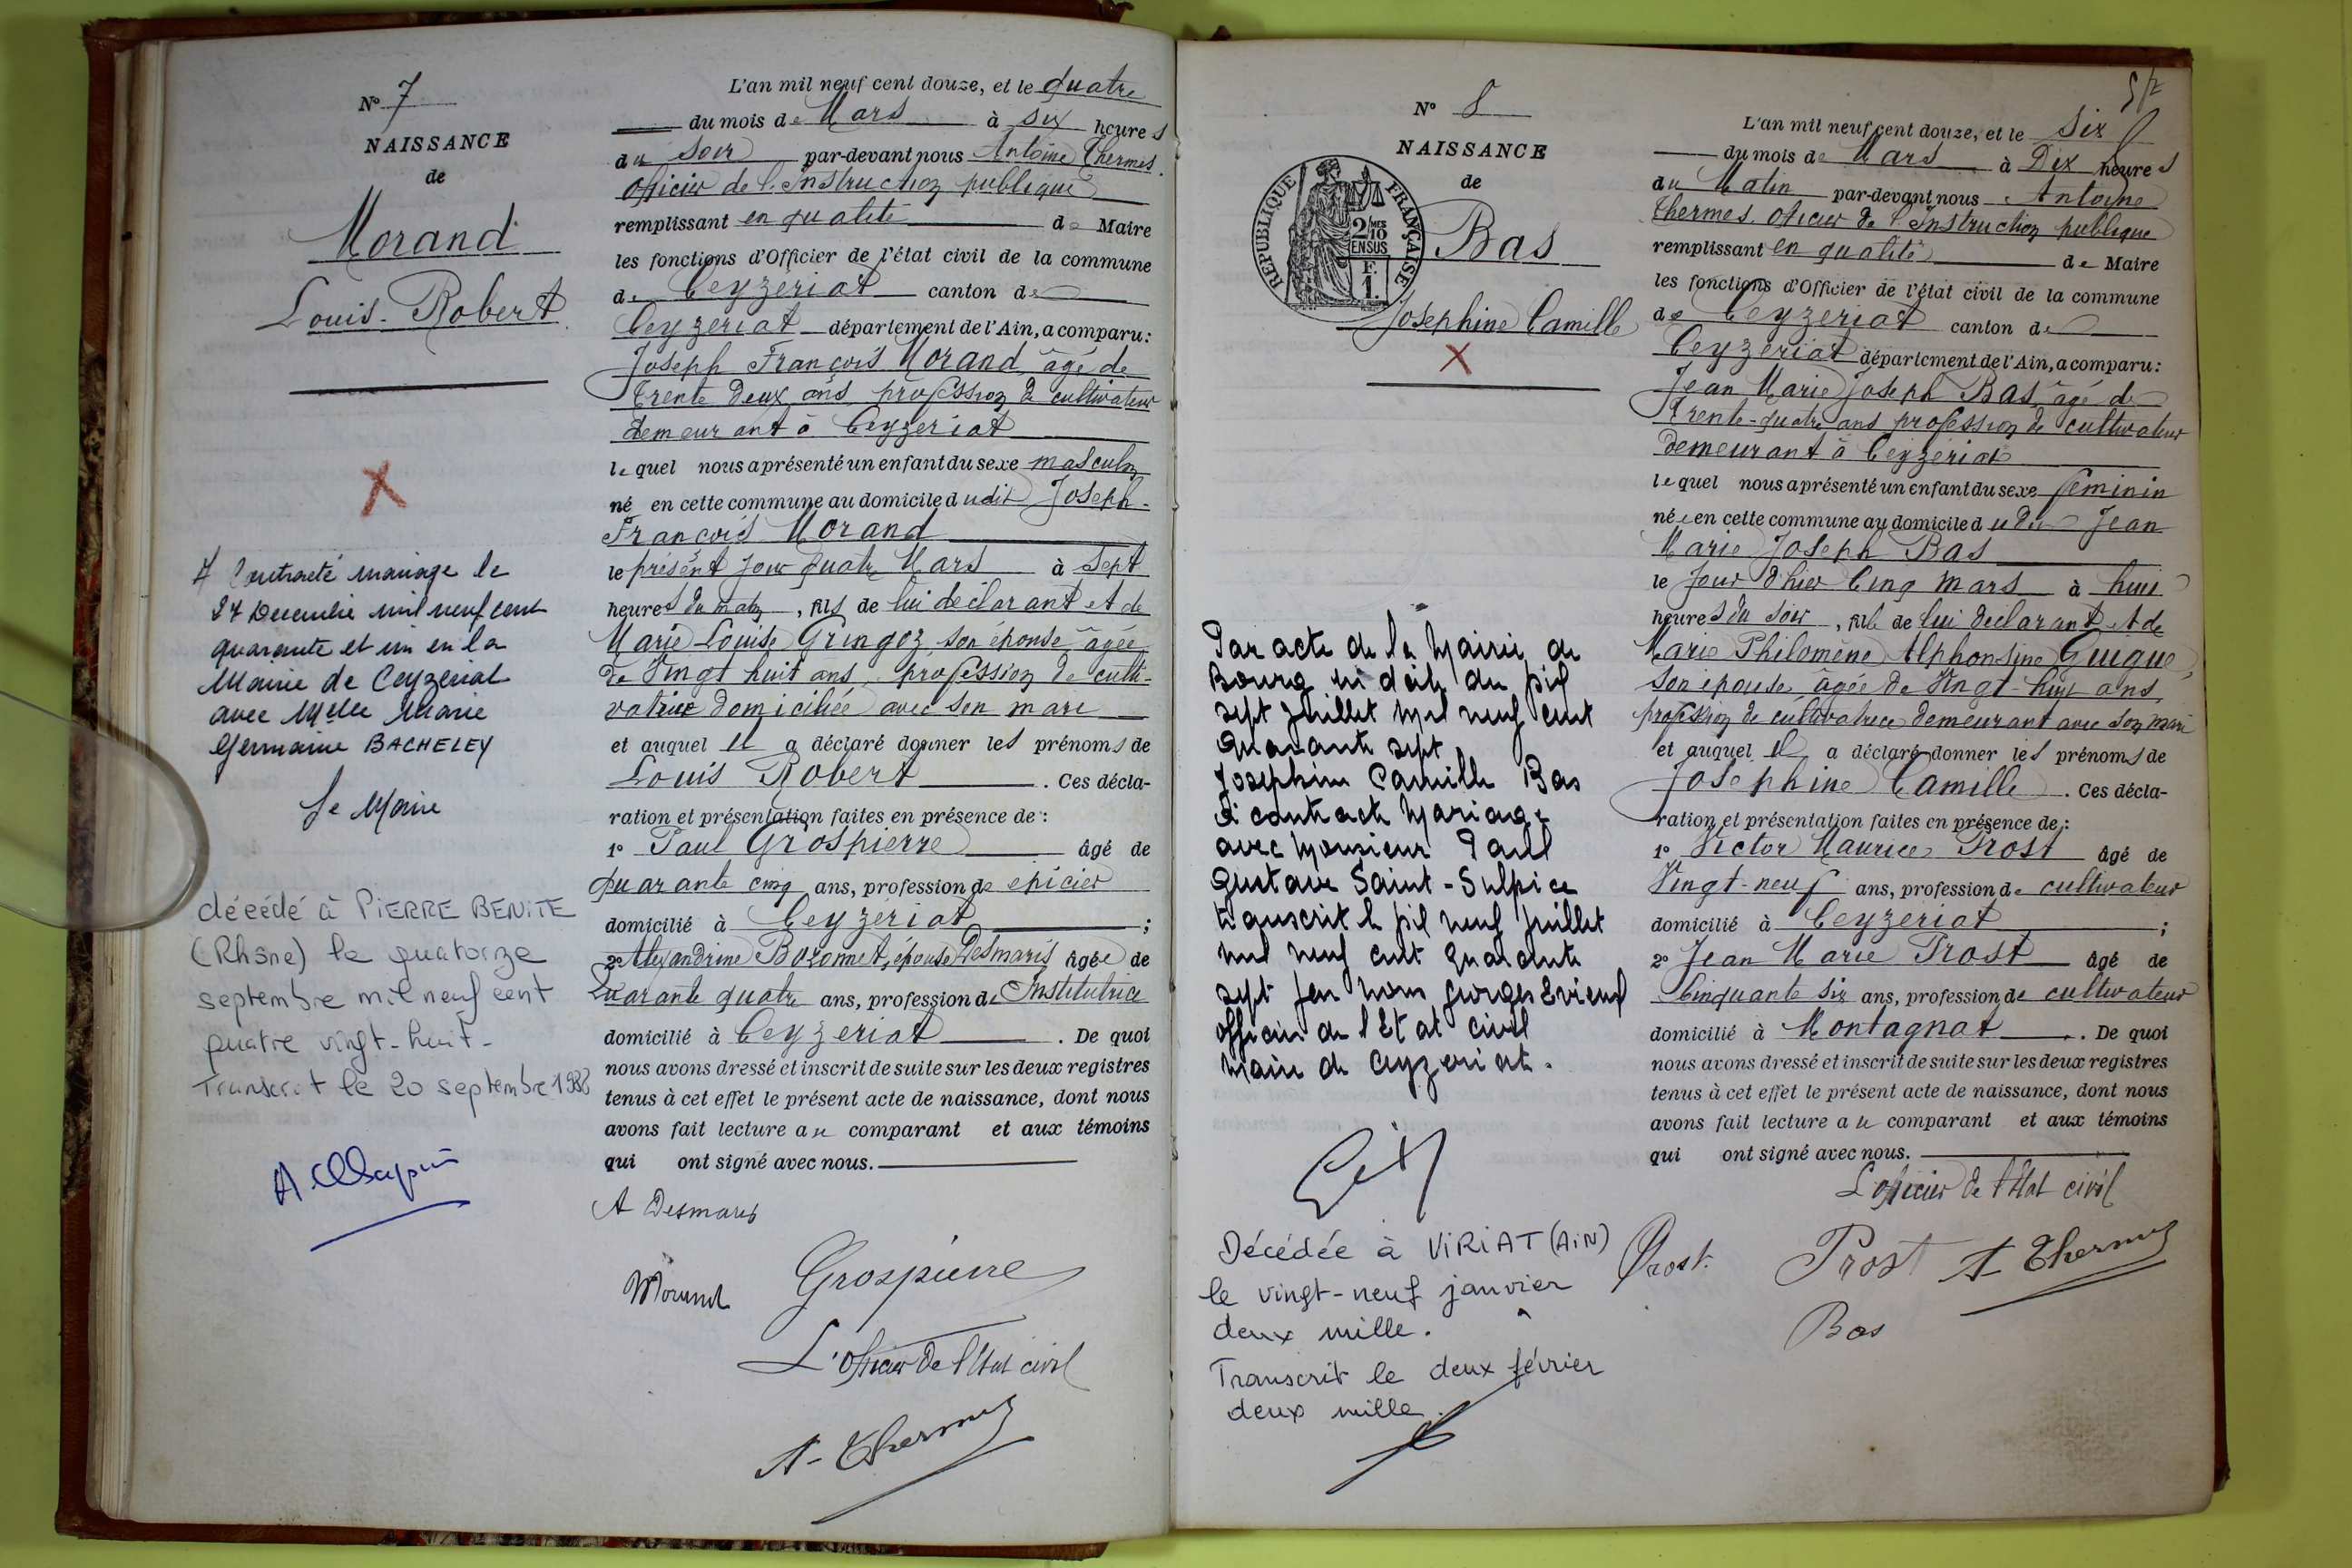 N° 7
NAISSANCE
de
Morand
Louis-Robert
A Contracté mariage le
27 Decembre mil neuf cent
quarante et un en la
Mairie de Ceyzériat
avec Melle Marie
Germaine BACHELEY
Le Maire
décédé à PIERRE BENITE
(Rhône) le quatorze
septembre mil neuf cent
quatre vingt-huit-
Transcrit le 20 septembre 1988
L'an mil neuf cent douze, et le quatre
du mois de Mars à six heures
du soir par-devant nous Antoine Thermes
officier de l'Instruction publique
remplissant en qualité de Maire
les fonctions d'Officier de l'état civil de la commune
de Ceyzériat canton de
Ceyzeriat département de l'Ain, a comparu:
Joseph François Morand, âgé de
trente deux ans, profession de cultivateur
demeurant à Ceyzériat
lequel nous a présenté un enfant du sexe masculin
né en cette commune au domicile dudit Joseph-
François Morand
le présent jour quatre Mars à sept
heures du matin, fils de lui déclarant et de
Marie Louise Gringoz, son épouse, âgée
de Vingt huit ans, profession de culti-
vatrice domiciliée avec son mari
et auquel il a déclaré donner les prénoms de
Louis Robert. Ces décla-
ration et présentation faites en présence de:
1° Paul Grospierre âgé de
quarante cinq ans, profession de epicier
domicilié à Ceyzériat;
2° Alexandrine Bozonnet, épouse Desmaris âgée de
Quarante quatre ans, profession de Institutrice
domicilié à Ceyzeriat. De quoi
nous avons dressé et inscrit de suite sur les deux registres
tenus à cet effet le présent acte de naissance, dont nous
avons fait lecture au comparant et aux témoins
qui ont signé avec nous.
A Desmaris
Morand Grospierre
L'officier de l'Etat civil
A- Thermes
N° 8
NAISSANCE
de
REPUBLIQUE FRANÇAISE
2/10MES
EN SUS
F.
1.
Bas
Josephine Camille
Par acte de la Mairie de
Bourg en date du
sept Juillet mil neuf cent
quarante sept
Josephine Camille Bas
a contracté Mariage
avec Monsieur Paul
Gustave Saint-Sulpice
transcrit le neuf juillet
mil neuf cent quarante
sept par nous Georges
officier de l'Etat civil
Maire de Ceyzeriat.
Décédée à VIRIAT (AIN)
le vingt-neuf janvier
deux mille.
Transcrit le deux février
deux mille.
57
L'an mil neuf cent douze, et le Six
du mois de Mars à Dix heures
du Matin par-devant nous Antoine
Thermes, officier de l'Instruction publique
remplissant en qualité de Maire
les fonctions d'Officier de l'état civil de la commune
de Ceyzeriat canton de
Ceyzériat département de l'Ain, a comparu:
Jean Marie Joseph Bas, âgé de
trente-quatre ans profession de cultivateur
demeurant à Ceyzériat
lequel nous a présenté un enfant du sexe féminin
née en cette commune au domicile dudit Jean
Marie Joseph Bas
le jour d'hier Cinq mars à huit
heures du soir, fille de lui déclarant et de
Marie Philomène Alphonsine Guigue,
son épouse, âgée de Vingt-huit ans,
profession de cultivatrice demeurant avec son mari
et auquel il a déclaré donner les prénoms de
Josephine Camille. Ces décla-
ration et présentation faites en présence de:
1° Victor Maurice Prost âgé de
Vingt-neuf ans, profession de cultivateur
domicilié à Ceyzeriat;
2° Jean Marie Prost âgé de
Cinquante six ans, profession de cultivateur
domicilié à Montagnat. De quoi
nous avons dressé et inscrit de suite sur les deux registres
tenus à cet effet le présent acte de naissance, dont nous
avons fait lecture au comparant et aux témoins
qui ont signé avec nous.
L'officier de l'Etat civil
Prost. Prost A- Thermes
Bas